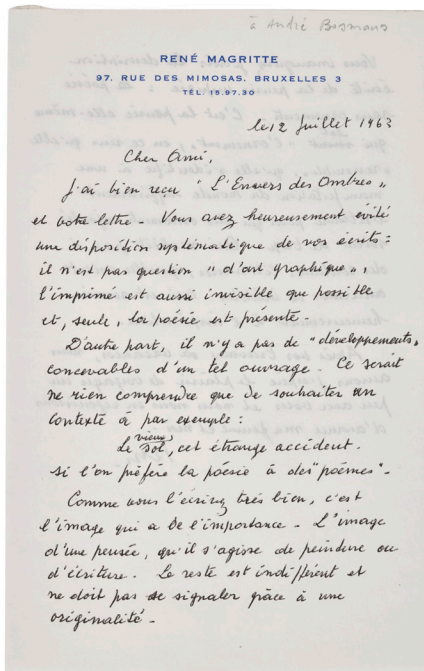 à André Bosmans
RENÉ MAGRITTE
97, RUE DES MIMOSAS, BRUXELLES 3
TÉL. 15.97.30
le 12 Juillet 1963
Cher Ami,
J'ai bien reçu "L'Envers des Ombres"
et votre lettre - Vous avez heureusement évité
une disposition systématique de vos écrits :
il n'est pas question "d'art graphique",
l'imprimé est aussi invisible que possible
et, seule, la poésie est présente -
D'autre part, il n'y a pas de "développements"
concevables d'un tel ouvrage. Ce serait
ne rien comprendre que de souhaiter un
contexte à par exemple :
Le vieux sol, cet étrange accident.
si l'on préfère la poésie à des "poèmes" -
Comme vous l'écrivez très bien, c'est
l'image qui a de l'importance - L'image
d'une pensée, qu'il s'agisse de peinture ou
d'écriture. Le reste est indifférent et
ne doit pas se signaler grâce à une
originalité -